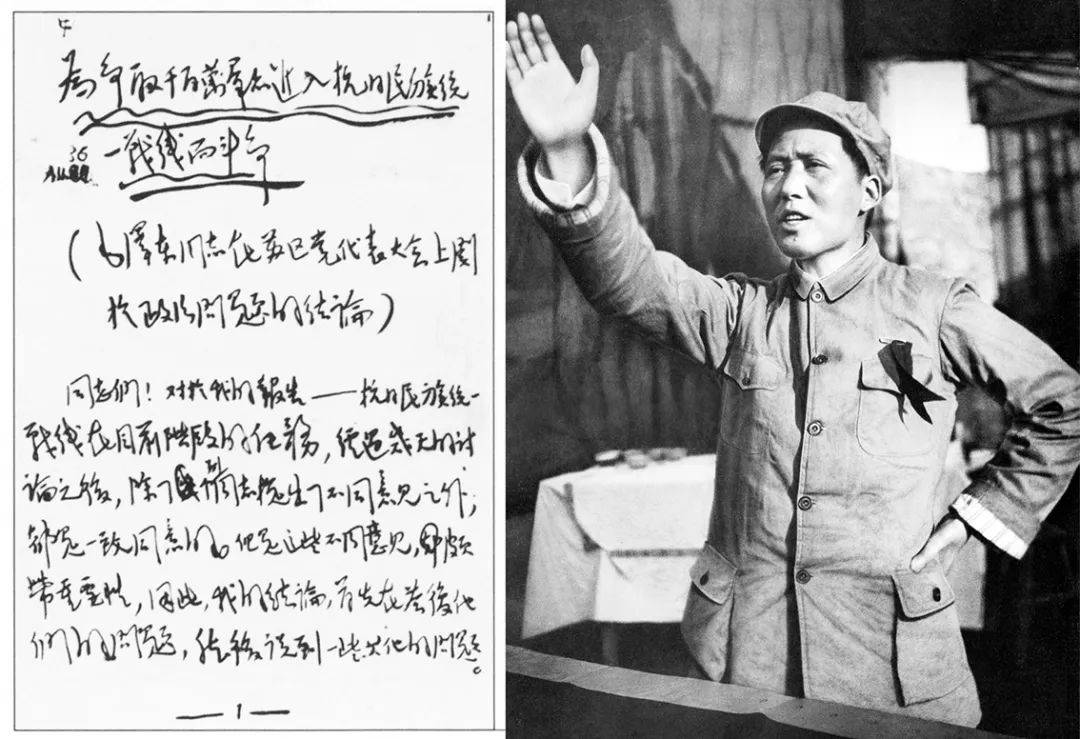 为争取千百萬羣众进入抗日民族统
一战线而斗争
（毛泽东同志在苏区党代表大会上関
於政治问题的结論）
同志们！对於我的報告——抗日民族统一
战线在目前階段的任務，经过幾天的讨
論之後，除了個别同志提出了不同意见之外，
都是一致同意的。但是这些不同意見，却颇
带重要性，因此，我的结論，首先在答復他
们的问题，然後说到一些其他的问题。
—1—